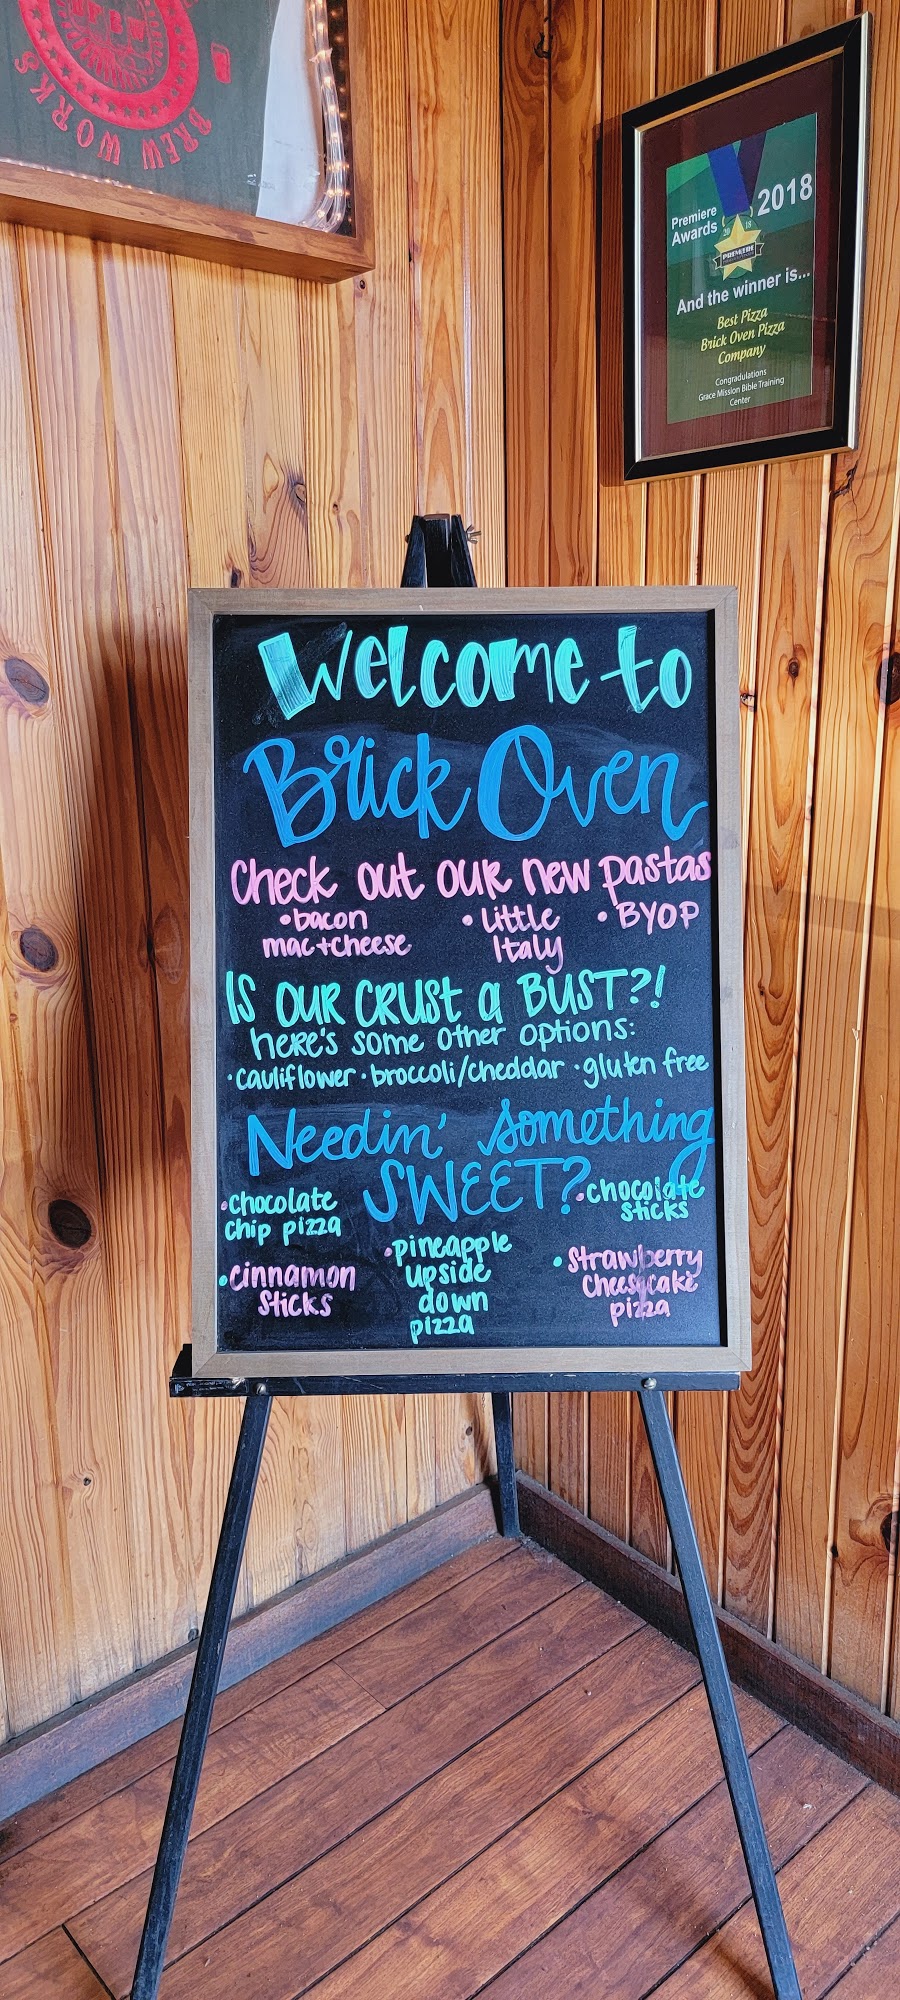 BREW WORKS
Premiere
Awards
2018
PREMIERE
And the winner is...
Best Pizza
Brick Oven Pizza
Company
Congradulations
Grace Mission Bible Training
Center
Welcome to
Brick Oven
Check out our new pastas
•bacon
mac+cheese
•Little
Italy
•BYOP
Is our crust a BUST?!
here's some other options:
•cauliflower •broccoli/cheddar •gluten free
Needin' something
SWEET?
•chocolate
chip pizza
•chocolate
sticks
•cinnamon
sticks
•pineapple
upside
down
pizza
•strawberry
cheesecake
pizza